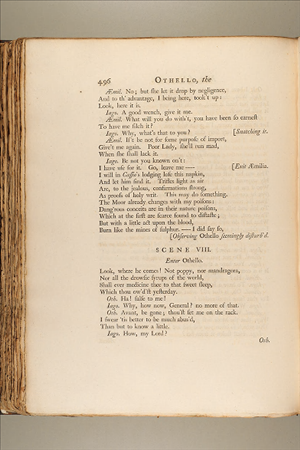 496 OTHELLO, the
Æmil. No; but she let it drop by negligence,
And to th' advantage, I being here, took't up:
Look, here it is.
Iago. A good wench, give it me.
Æmil. What will you do with't, you have been so earnest
To have me filch it?
Iago. Why, what's that to you? [Snatching it.
Æmil. If't be not for some purpose of import,
Give't me again. Poor Lady, she'll run mad,
When she shall lack it.
Iago. Be not you known on't:
I have use for it. Go, leave me — [Exit Æmilia.
I will in Cassio's lodging lose this napkin,
And let him find it. Trifles light as air
Are, to the jealous, confirmations strong,
As proofs of holy writ. This may do something.
The Moor already changes with my poisons:
Dang'rous conceits are in their nature poisons,
Which at the first are scarce found to distaste;
But with a little act upon the blood,
Burn like the mines of sulphur. — I did say so,
[Observing Othello seemingly disturb'd.
SCENE VIII.
Enter Othello.
Look, where he comes! Not poppy, nor mandragora,
Nor all the drowsie syrups of the world,
Shall ever medicine thee to that sweet sleep,
Which thou ow'dst yesterday.
Oth. Ha! false to me!
Iago. Why, how now, General? no more of that.
Oth. Avant, be gone; thou'st set me on the rack.
I swear 'tis better to be much abus'd,
Than but to know a little.
Iago. How, my Lord?
Oth.